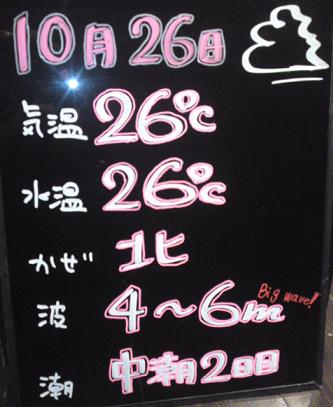 10月26日
気温 26℃
水温 26℃
かぜ 北
波 4～6m Big wave!
潮 中潮2日目